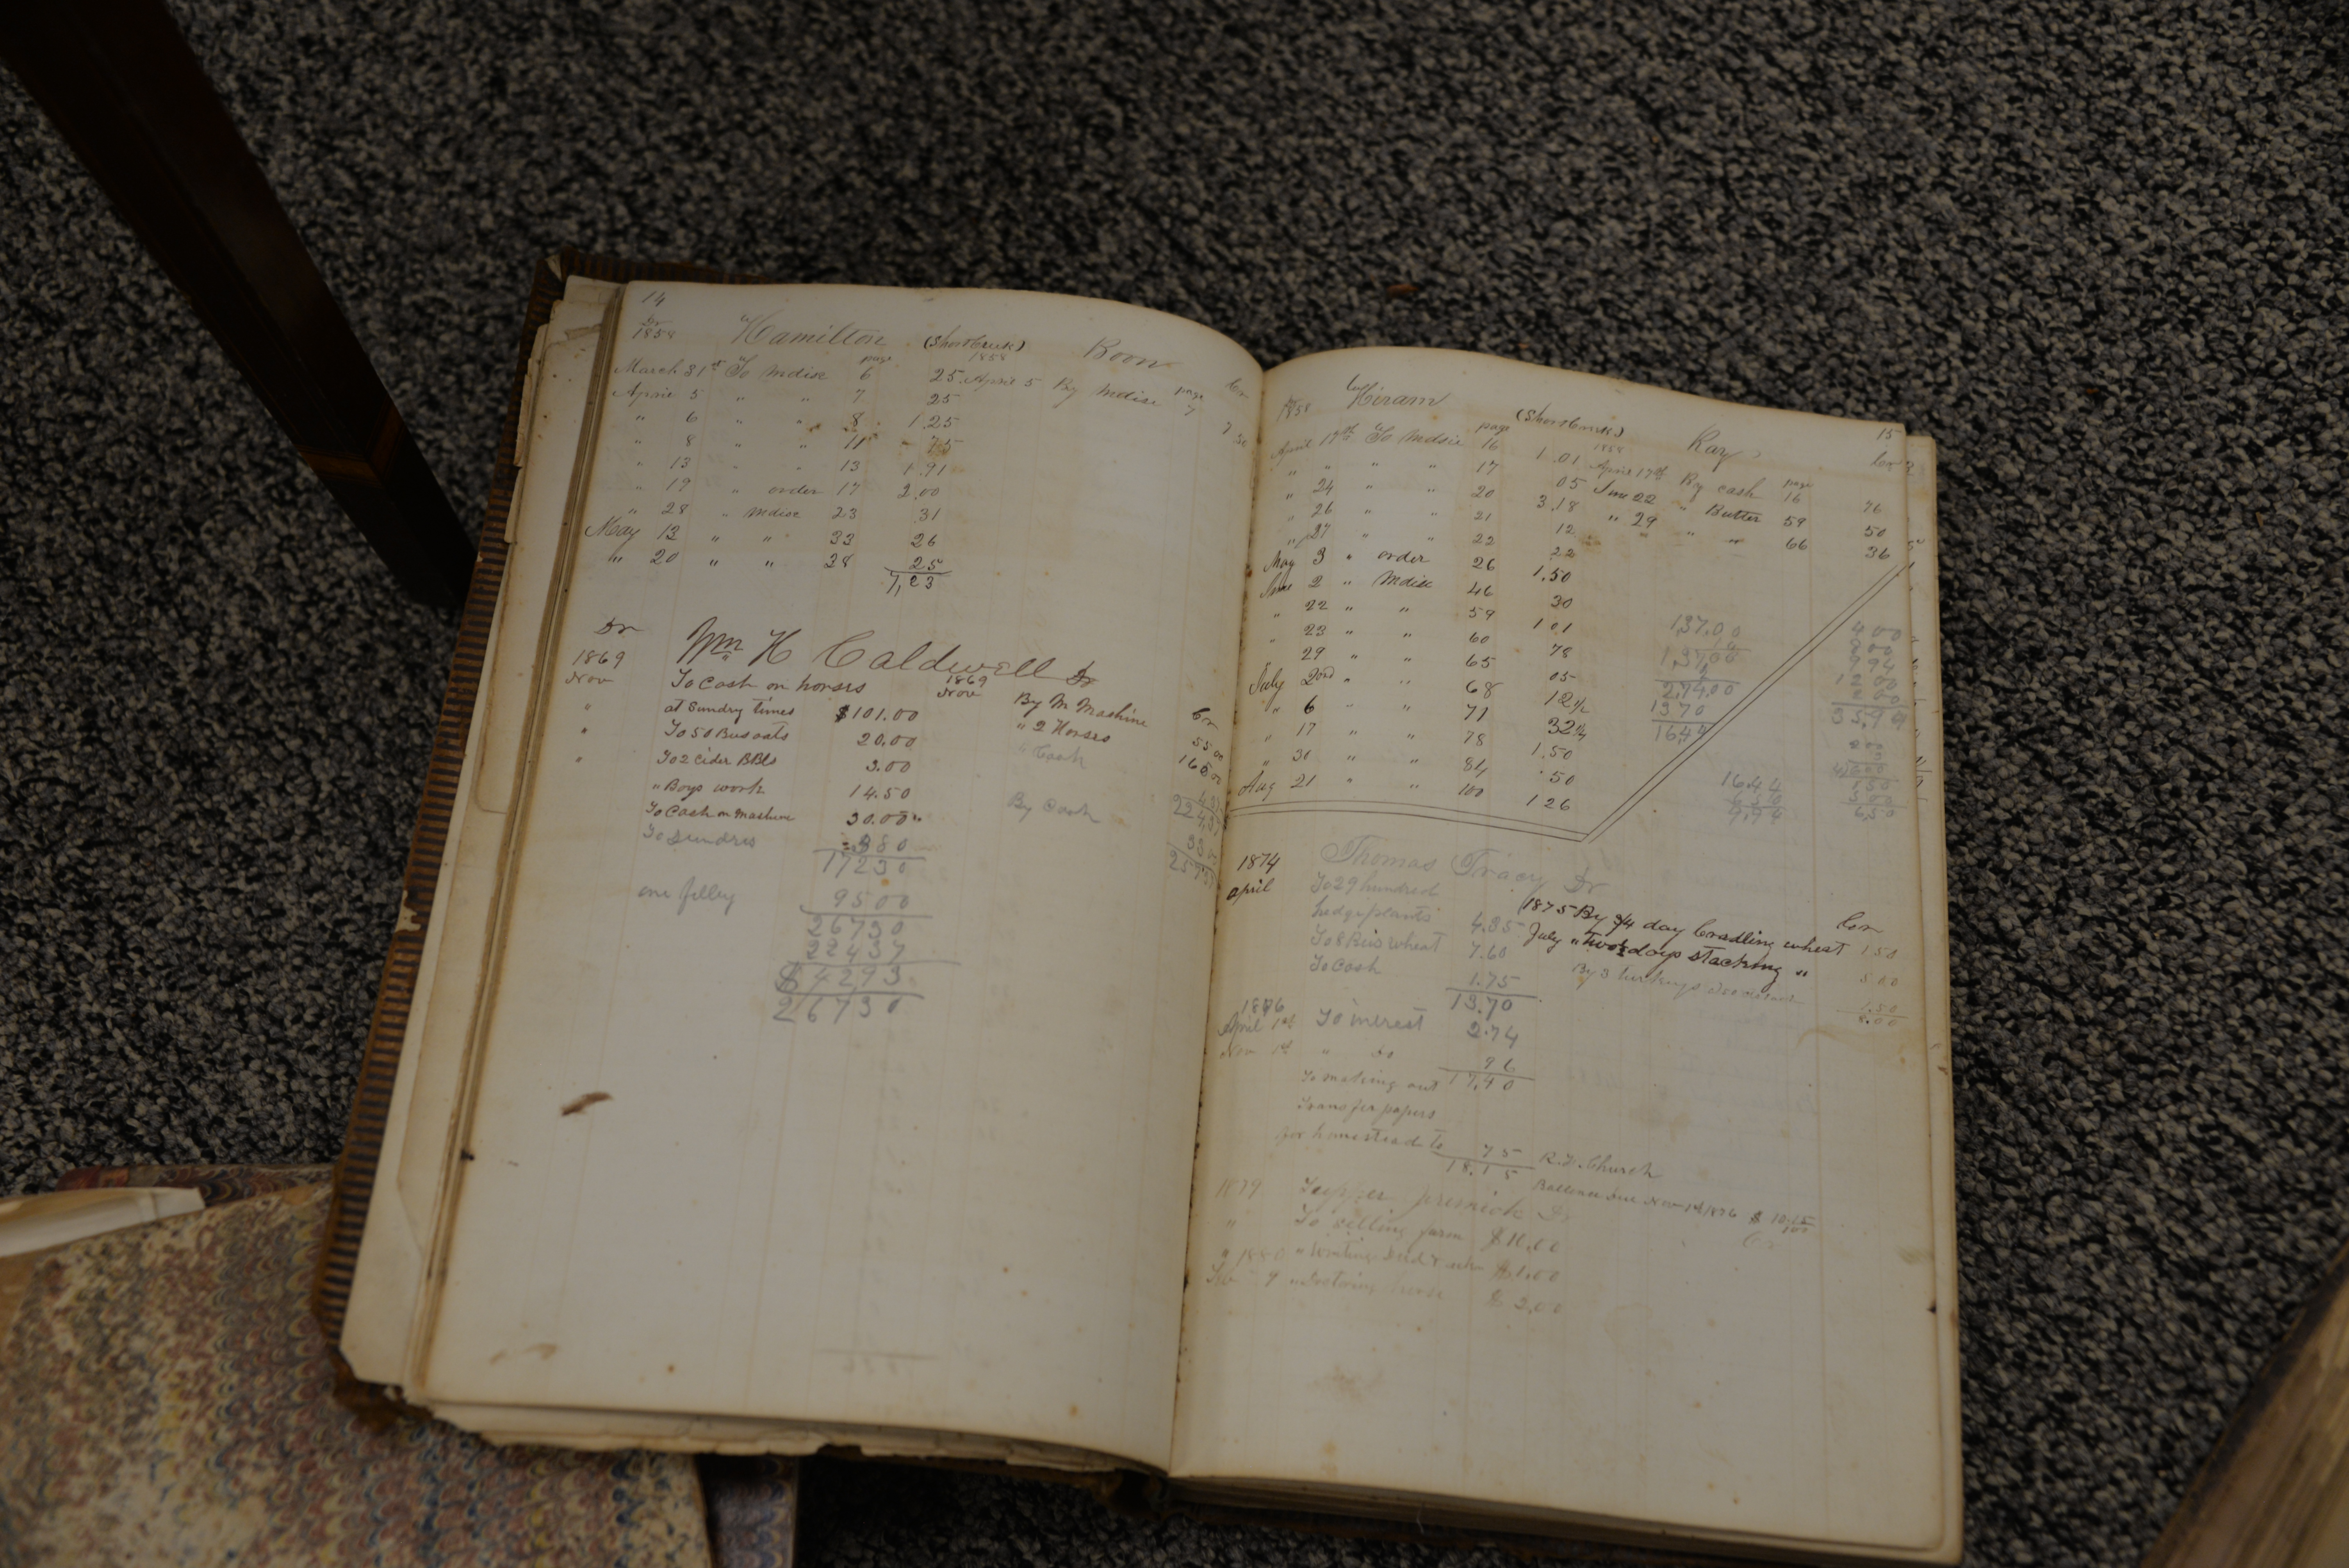 14
Dr
1858 Hamilton (Shortcreek) Boon
page 1858 Cr
March 31st To Mdise 6 25 April 5 By Mdise page 7 7 50
April 5 " " 7 25
" 6 " " 8 1.25
" 8 " " 11 75
" 13 " " 13 1.91
" 19 " order 17 2.00
" 28 " Mdise 23 .31
May 13 " " 33 26
" 20 " " 38 25
7,23
Dr Wm H Caldwell Dr
1869 1869 Cr
Nov To Cash on horses Nov By M Mashine 55 00
" at Sundry times $101.00 " 2 Horses 165 00
" To 50 Bus oats 20.00 " Cash 4.37
" To 2 Cider BBls 3.00 224,37
" Boys work 14.50 By Cash 33
To Cash on Mashine 30.00 257 37
To Sundres 3 80
172 30
one filley 95 00
267 30
224 37
$ 42 93
267 30
15
1858 Hiram (Shortcreek) Ray Cr
page 1858 page
April 17th To Mdise 16 1.01 April 17th By Cash 16 76
" " " " 17 05 June 22 " Butter 59 50
" 24 " " 20 3.18 " 29 " " 66 36
" 26 " " 21 12
" 27 " " 22 22
May 3 " order 26 1.50
June 2 " Mdise 46 30
" 22 " " 59 101
" 23 " " 60 78
" 29 " " 65 05
July 2nd " " 68 12 1/2
" 6 " " 71 32 1/2
" 17 " " 78 1.50
" 30 " " 84 .50
Aug 21 " " 100 1 26
137.00
137 00
274.00
1370
16,44
400
200
994
1200
35,94
16.44
6 50
9.94
6,50
1874 Thomas Tracy Dr Cr
April To 29 hundred
hedge plants 4.35 1875 By 3/4 day Cradling wheat 1 50
To 8 Bus wheat 7.60 July " Two 1/2 days stacking " 5 00
To Cash 1.75 By 3 turkeys 1.50
13.70 8.00
1876
April 1st To interest 2.74
Nov 1st " Do 96
17,40
To making out
transfer papers
for homestead to 75 R. H. Church
18.15 Ballance due Nov 1st 1876 $ 10.15/100
1879 Dr Cr
" To selling farm $10.00
" 1880 " Writing Deed $1.00
9 " Doctoring horse $ 2,00